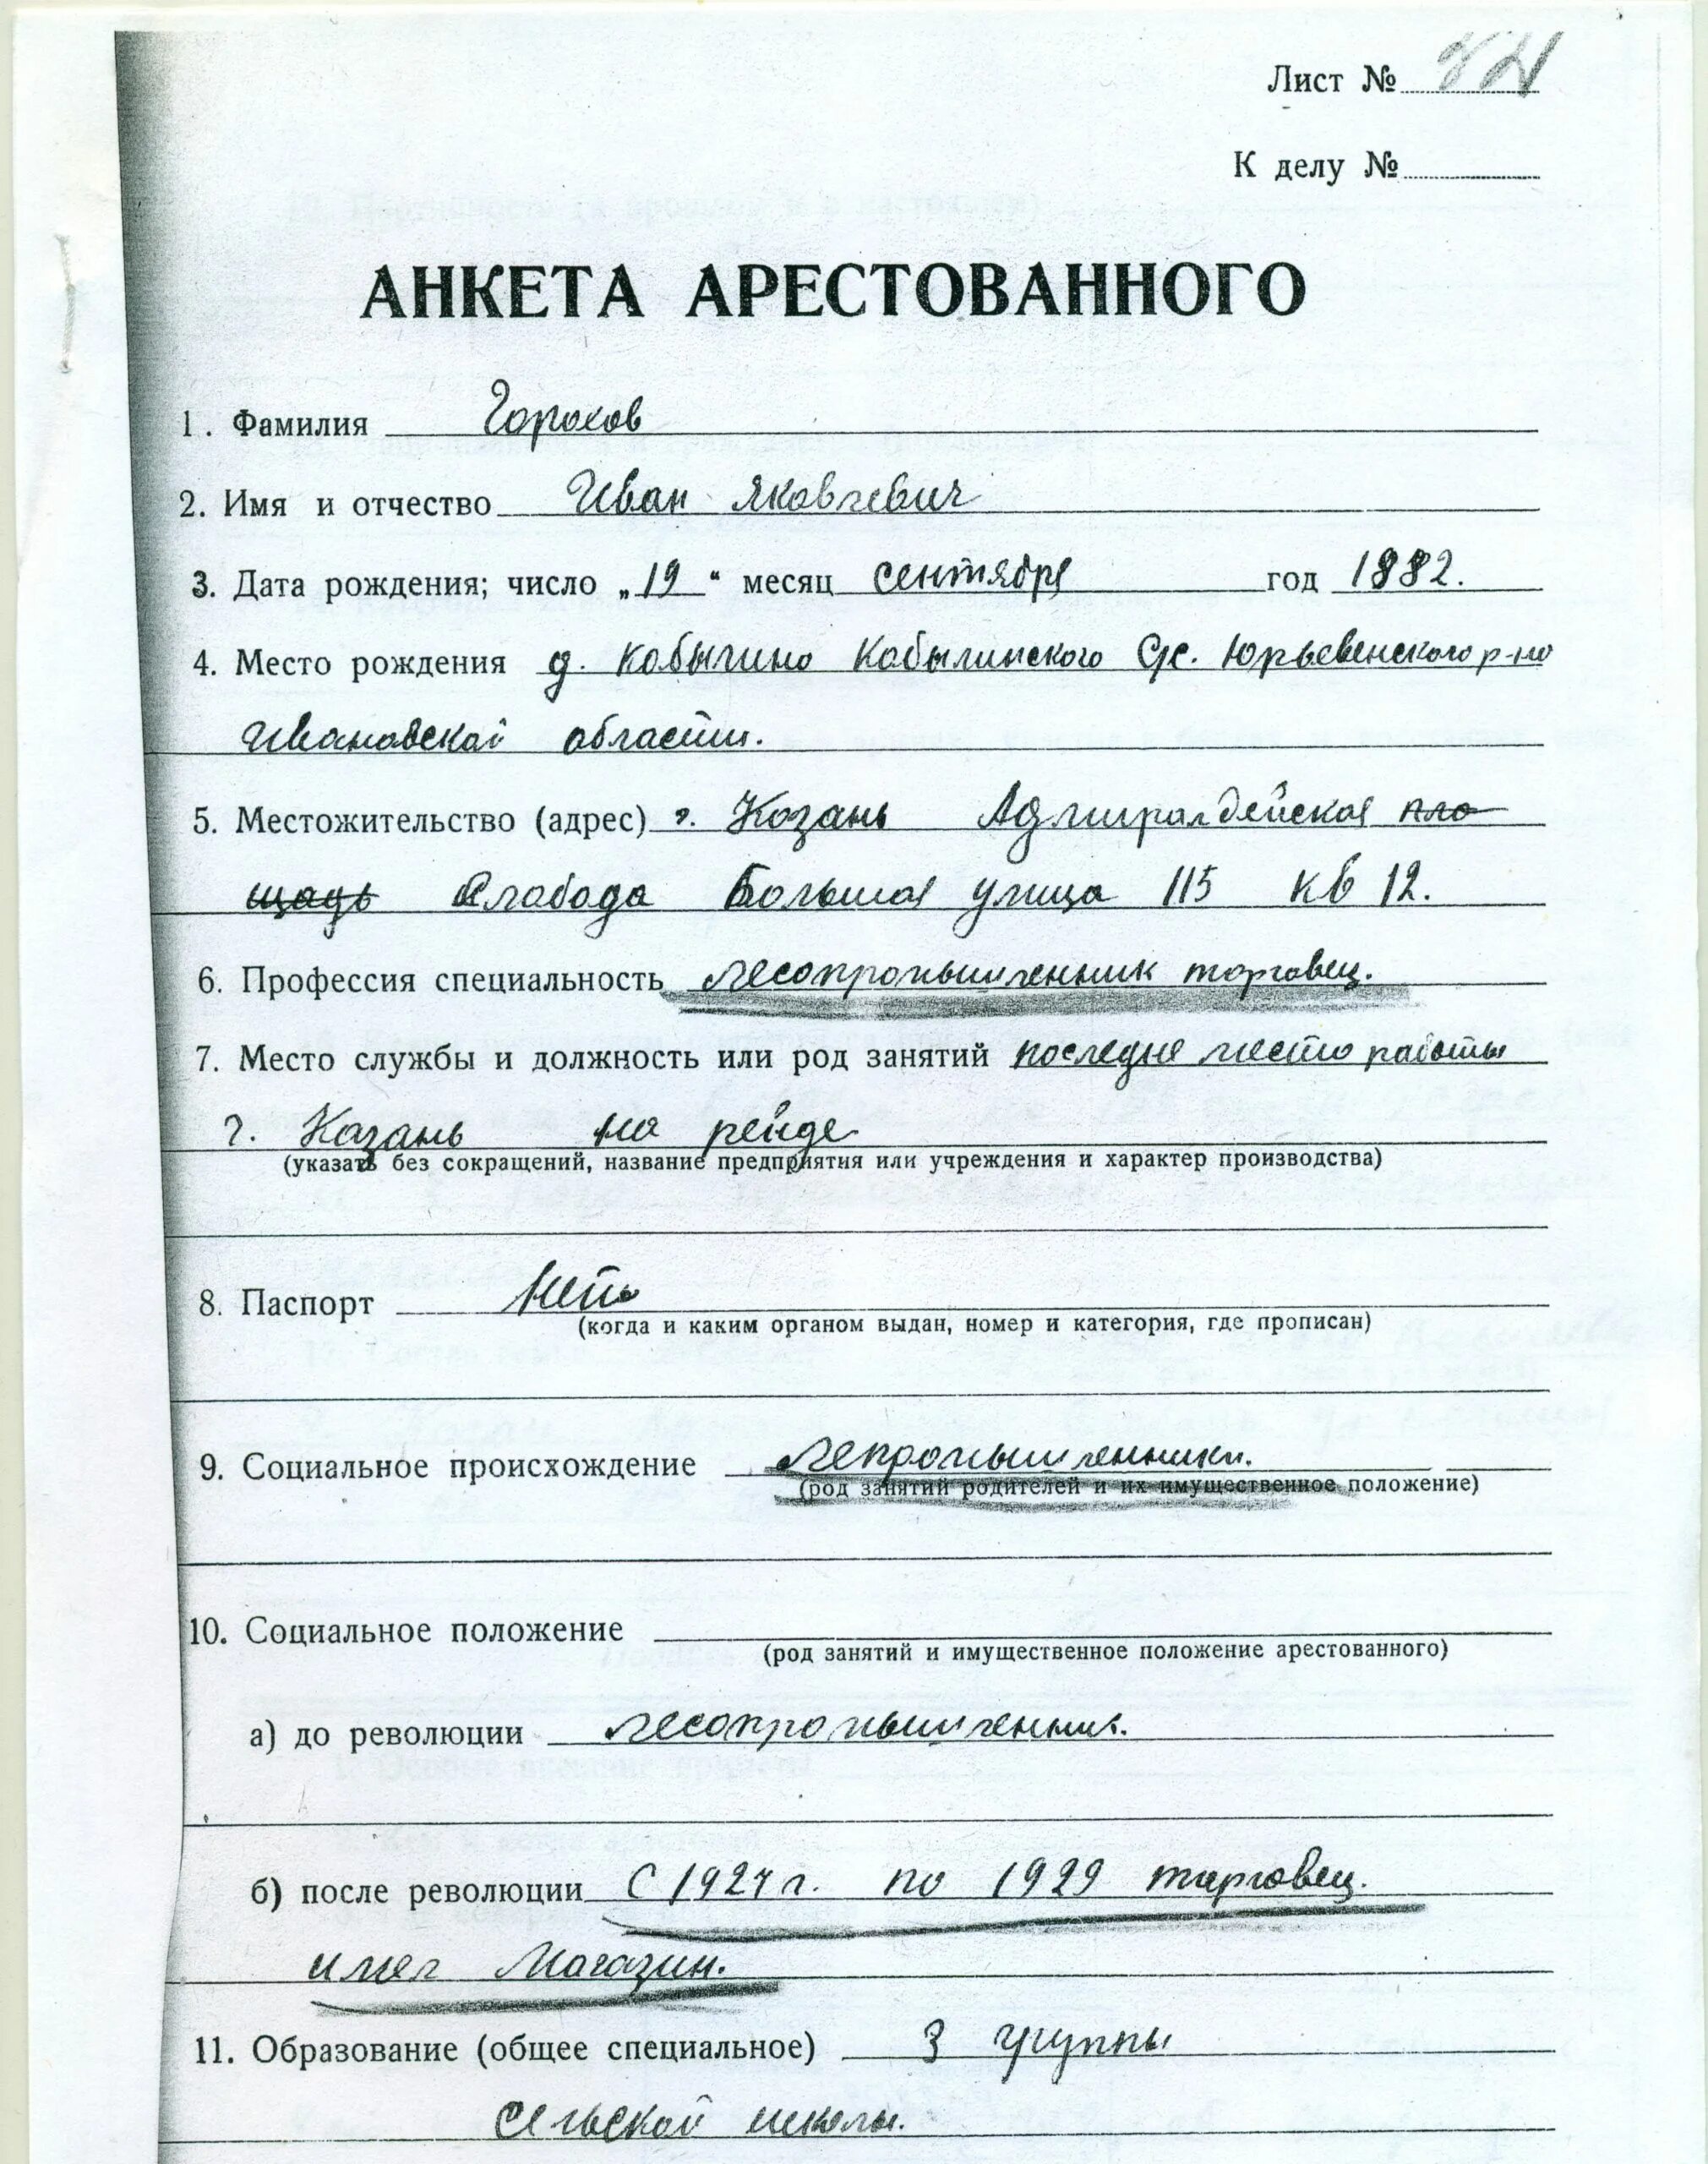 Лист №
К делу №
АНКЕТА АРЕСТОВАННОГО
1. Фамилия Горохов
2. Имя и отчество Иван Яковлевич
3. Дата рождения; число „19“ месяц сентября год 1882.
4. Место рождения д. Кобылино Кобылинского С/с. Юрьевенского р-но
Ивановской области.
5. Местожительство (адрес) г. Козань Адмиралдейская пло
щадь Слобода Большая улица 115 кв 12.
6. Профессия специальность лесопромышленник торговец.
7. Место службы и должность или род занятий последне место работы
г. Казань на рейде
(указать без сокращений, название предприятия или учреждения и характер производства)
8. Паспорт Нету
(когда и каким органом выдан, номер и категория, где прописан)
9. Социальное происхождение Лепромышленники.
(род занятий родителей и их имущественное положение)
10. Социальное положение
(род занятий и имущественное положение арестованного)
а) до революции лесопромышленник.
б) после революции С 1924 г. по 1929 торговец.
имел Магазин.
11. Образование (общее специальное) 3 группы
Сельской школы.